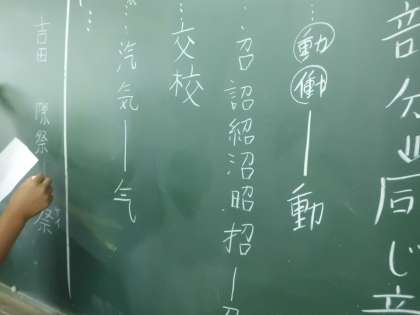 部分が同じ音
動働―動
召 詔紹沼昭招―召
交校
汽気―气
吉田 際祭―祭